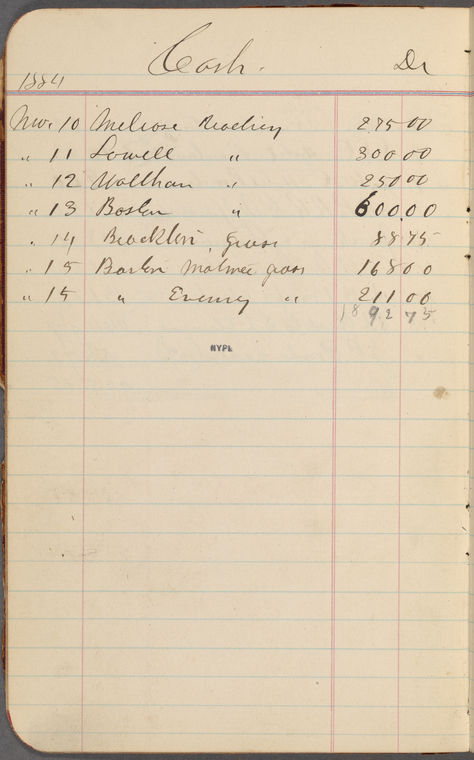 Cash. Dr
1884
Nov. 10 Melrose Reading 275 00
" 11 Lowell " 300 00
" 12 Waltham " 250 00
" 13 Boston " 600.00
" 14 Brockton, gross 88 75
" 15 Boston Matinee gross 168 00
" 15 " Evening " 211 00
1892 75
NYPL